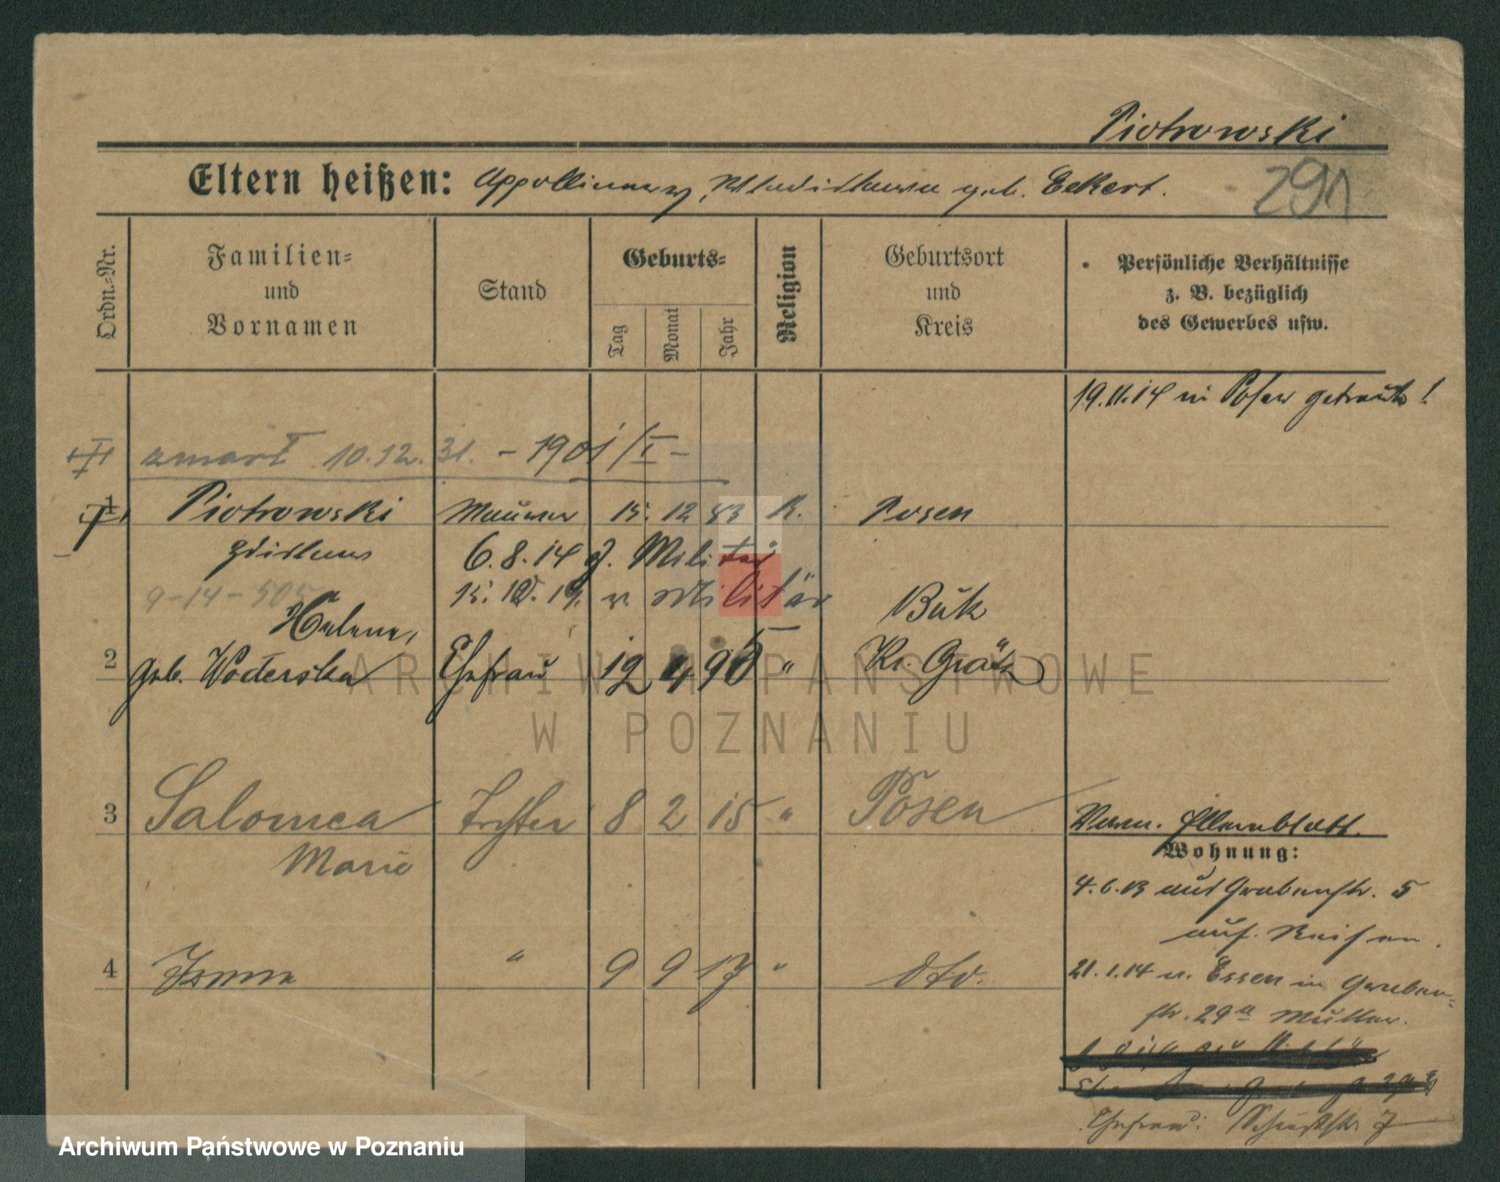 Piotrowski
291
Eltern heißen: Appollinary, Wladislawa geb. Eckert.
Ordn.-Nr.
Familien- und Vornamen
Stand
Geburts-
Tag
Monat
Jahr
Religion
Geburtsort und Kreis
Persönliche Verhältnisse
z. B. bezüglich
des Gewerbes usw.
19.11.14 in Posen getraut!
zmarł 10.12.31. - 1901/I -
1 Piotrowski Maurer 15. 12 83 K. Posen
Zdislaus 6.8.14 z. Militär
9-14-505 15. 12. 19. v. Militär
Helena, Buk
2 geb. Woderska Ehefrau 12 4 95 " Kr. Grätz
3 Salomea Tochter 8 2 15 " Posen
Marie
Verm. Elternblatt.
Wohnung:
4.6.13 aus Grabenstr. 5
auf Reisen.
4 Irma " 9 9 17 " dto.
21.1.14 v. Essen in Graben-
str. 29 Mutter.
Ehefrau: 7
Archiwum Państwowe w Poznaniu
ARCHIWUM PAŃSTWOWE
W POZNANIU